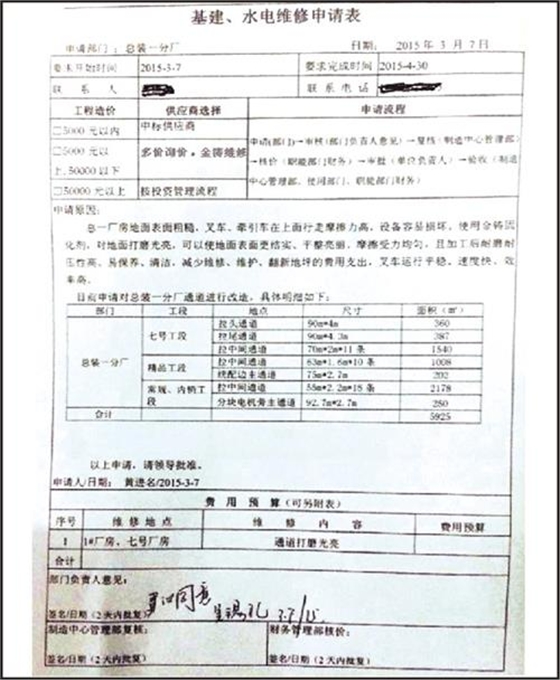 基建、水电维修申请表
申请部门：总装一分厂 日期： 2015年3月7日
要求开始时间 2015-3-7 要求完成时间 2015-4-30
联系人 联系电话
工程造价 供应商选择 申请流程
□5000元以内 中标供应商
□5000元以上,50000以下 多价询价，金额维修
□50000元以上 按投资管理流程
申请(部门)→审核(部门负责人意见)→复核(制造中心管理部)
→核价(职能部门财务)→审批(单位负责人)→验收(制造
中心管理部、使用部门、职能部门财务)
申请原因：
总一厂房地面表面粗糙，叉车、牵引车在上面行走摩擦力高，设备容易损坏，使用合铸固
化剂，对地面打磨光亮，可以使地面表面更结实、平整亮丽，摩擦受力均匀，且加工后耐磨耐
压性高，易保养、清洁，减少维修、维护，翻新地坪的费用支出，叉车运行平稳、速度快、效
率高。
目前申请对总装一分厂通道进行改造，具体明细如下：
部门 工段 地点 尺寸 面积（㎡）
总装一分厂 七号工段 拉头通道 90m*4m 360
拉尾通道 90m*4.3m 387
拉中间通道 70m*2m*11条 1540
精品工段 拉中间通道 63m*1.6m*10条 1008
线配边主通道 75m*2.7m 202
常规、内销工段 拉中间通道 55m*2.2m*18条 2178
分块电机旁主通道 92.7m*2.7m 250
合计 5925
以上申请，请领导批准。
申请人/日期： 黄进名/2015-3-7
费用预算（可另附表）
序号 维修地点 维修内容 费用预算
1 1#厂房、七号厂房 通道打磨光亮
合计
部门负责人意见：
同意
签名/日期（2天内批复）
制造中心管理部复核： 财务管理部核价：
签名/日期（2天内批复） 签名/日期（2天内批复）